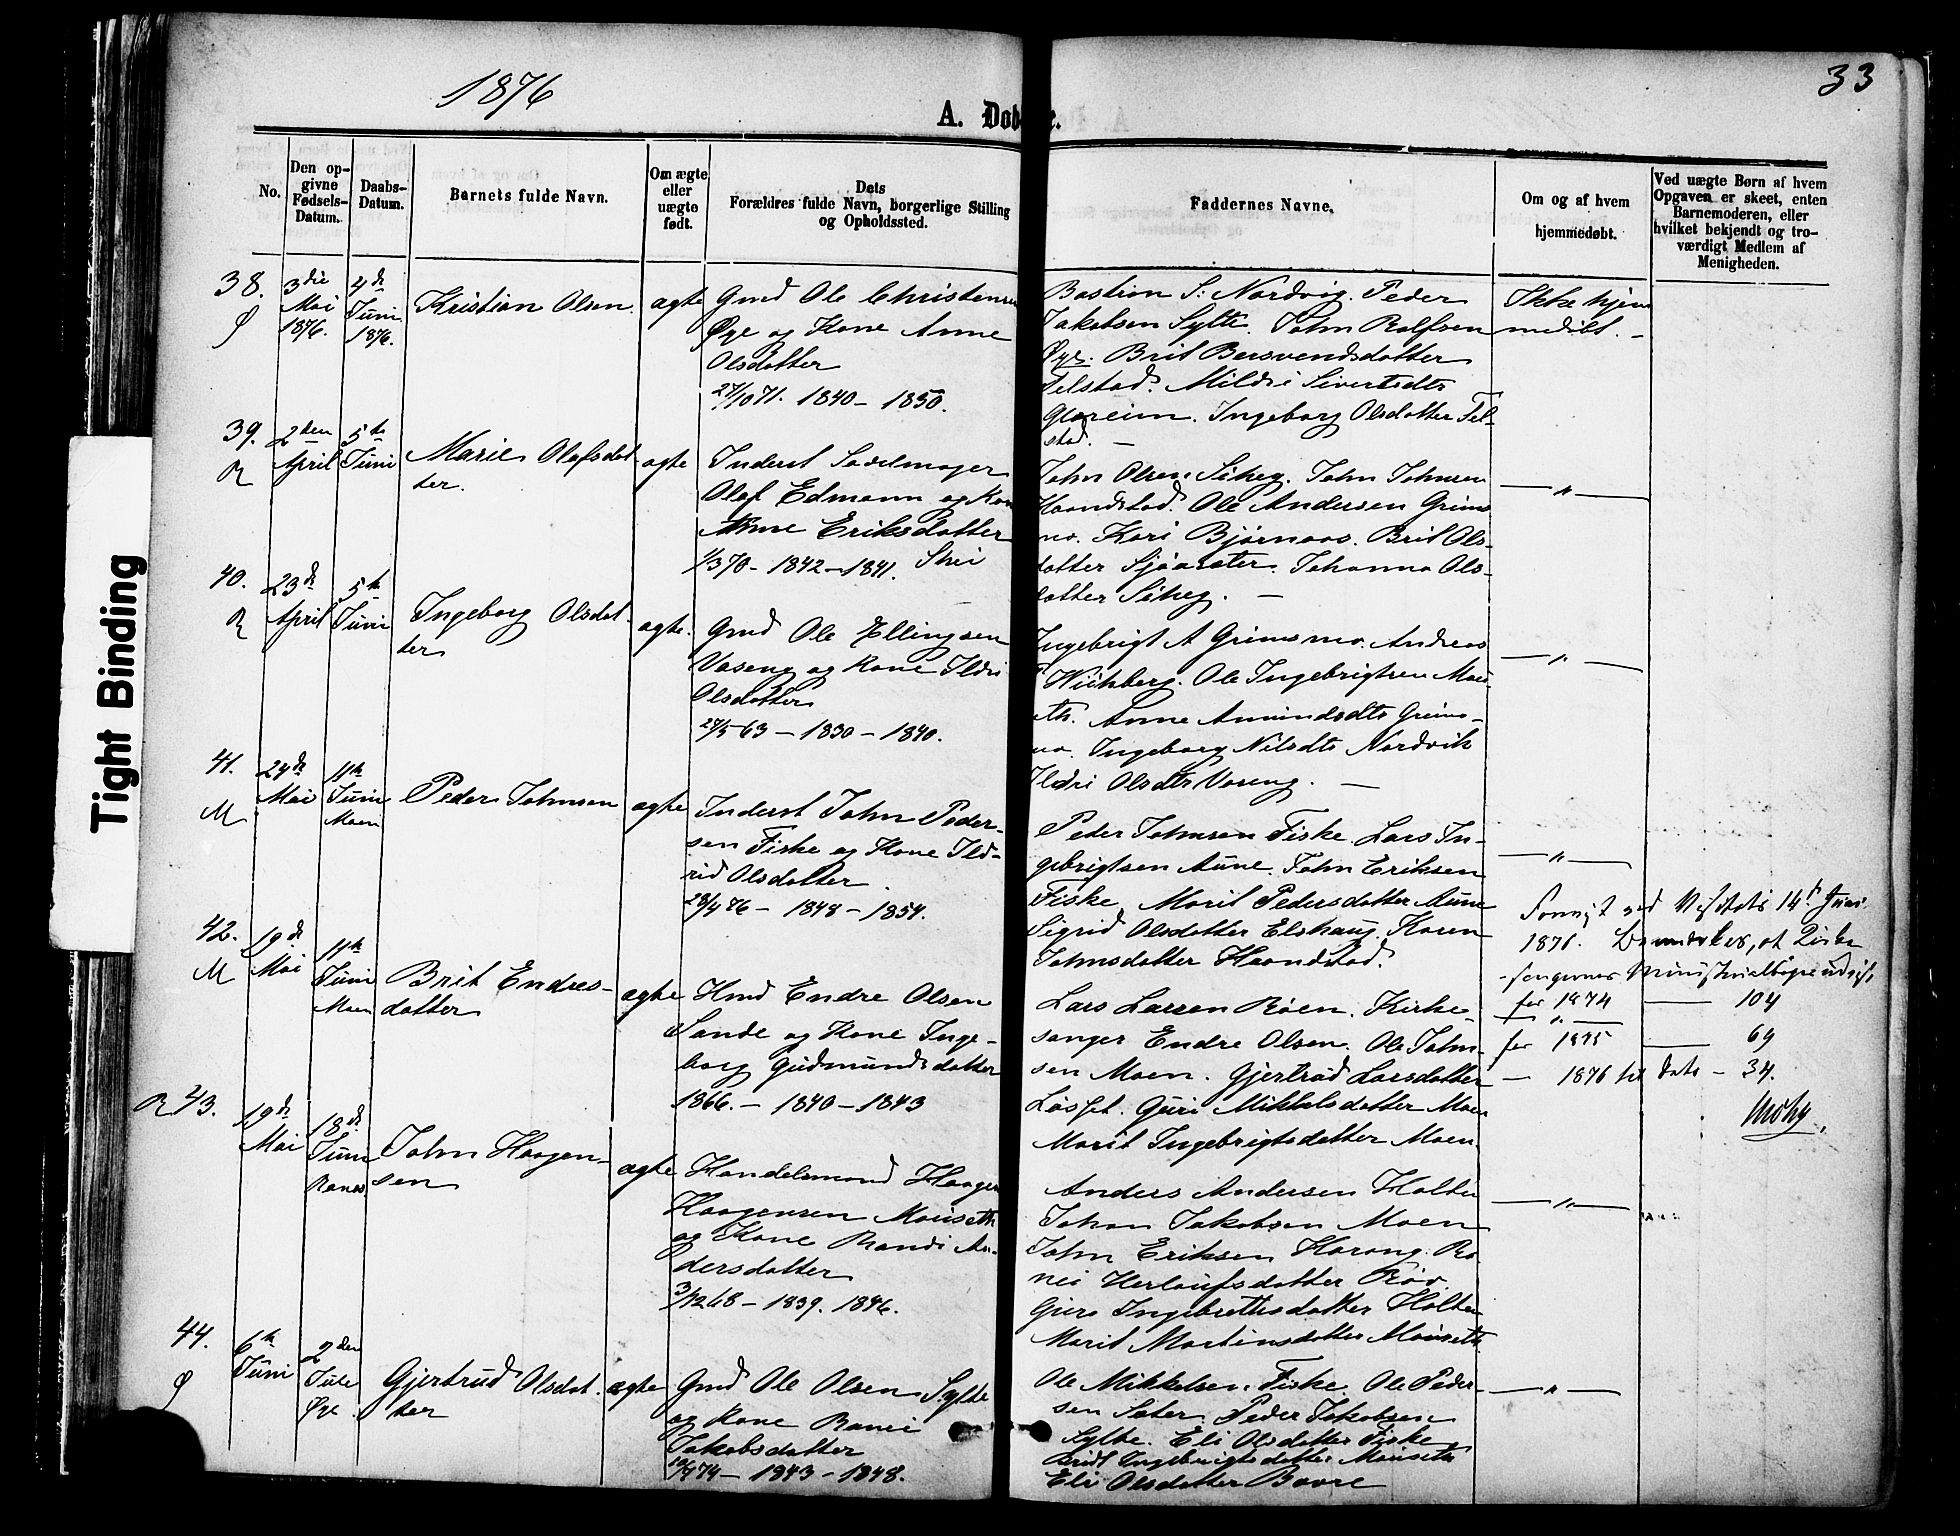 1876
33
A. Døbte.
No.
Den op-
givne
Fødsels-
Datum.
Daabs-
Datum.
Barnets fulde Navn.
Om ægte
eller
uægte
født.
Dets
Forældres fulde Navn, borgerlige Stilling
og Opholdssted.
Faddernes Navne.
Om og af hvem
hjemmedøbt.
Ved uægte Børn af hvem
Opgaven er skeet, enten
Barnemoderen, eller
hvilket bekjendt og tro-
værdigt Medlem af
Menigheden.
38.
Ø
3die
Mai
1876.
4de
Juni
1876.
Kristian Olsen
ægte
Gmd Ole Christensen
Øye og Kone Anne
Olsdatter
27/10 71. 1840 - 1850.
Bastian S. Nordvig. Peder
Jakobsen Sylte. John Rolfsen
Øye. Brit Bersvendsdatter
Telstad. Mildri Sivertsdtr
Glæreim. Ingeborg Olsdatter Tel-
stad. —
Ikke hjem
medøbt. -
39.
R
2den
April
5te
Juni
Marie Olafsdat-
ter.
ægte
Inderst Sadelmager
Olaf Edmann og Kone
Anne Eriksdatter
1/3 70 - 1842 - 1841. Skei
John Olsen Sæheg. John Johnsen
Haandstad. Ole Andersen Grims
mo. Kari Bjørnaas. Brit Ols-
datter Sjøaseter. Johanna Ols-
datter Sæheg. —
— " —
40.
R
23de
April
5te
Juni
Ingeborg Olsdat-
ter
ægte.
Gmd Ole Ellingsen
Vaseng og Kone Ildri
Olsdatter
28/5 63 - 1830 - 1840.
Ingebrigt A Grimsmo. Andreas
Ole Ingebrigtsen Mau-
seth. Anne Amundsdtr Grims-
mo. Ingeborg Nilsdtr Nordvik
Ildri Olsdtr Vaseng. —
— " —
41.
M
24de
Mai
11te
Juni
Moen
Peder Johnsen
ægte
Inderst John Peder-
sen Fiske og Kone Ild-
rid Olsdatter
28/4 76 - 1848 - 1854.
Peder Johnsen Fiske. Lars In-
gebrigtsen Aune. John Eriksen
Fiske. Marit Pedersdatter Aune
Sigrid Olsdatter Elshaug. Karen
Johnsdatter Haandstad.
— " —
Visitats 14de Juni
1876. Bemærkes, at Kirke
-sangernes Ministerialbog
for 1874 — 104
for 1875 — 69
— 1876 til Dato - 34.
42.
M
19de
Mai
11te
Juni
Moen
Brit Endres-
datter
ægte
Hmd Endre Olsen
Sande og Kone Inge-
borg Gudmundsdatter
1866. - 1840 - 1843
Lars Larsen Røen. Kirke-
sanger Endre Olsen. Ole John-
sen Moen. Gjertrud Larsdatter
Løset. Guri Mikkelsdatter Moen
Marit Ingebrigtsdatter Moen
— " —
R 43.
19de
Mai
18de
Juni
Ranes
John Haagen-
sen
ægte
Handelsmand Haagen
Haagensen Mauseth
og Kone Randi An-
dersdatter
3/12 68 - 1839. 1846.
Anders Andersen Holten
Johan Jakobsen Moen
John Eriksen Harang. Ra
nei Herlaufsdatter Røv.
Guro Ingebretsdatter Holten
Marit Martinsdatter Mauseth
— " —
44.
Ø
6te
Juni
2den
Jule
Øye.
Gjertrud Olsdat-
ter
ægte
Gmd Ole Olsen Sylte
og Kone Ranei
Jakobsdatter
10/4 74 - 1843 - 1848.
Ole Mikkelsen Fiske. Ole Peder-
sen Sæter. Peder Jakobsen
Sylte. Eli Olsdatter Fiske
Ingebrigtsdatter Mauseth
Eli Olsdatter Bævre
— " —
Tight Binding